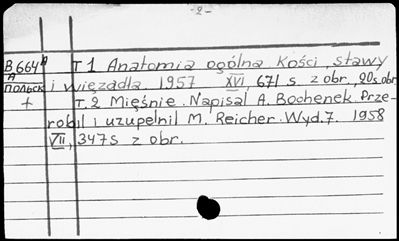 -2-
B 664 T. 1 Anatomia ogólna. Kości, stawy
A
польск i więzadła. 1957 XVI, 671 s. z obr., 20 s. obr.
+ T. 2 Mięśnie. Napisal A. Bochenek Prze-
robil i uzupelnil M. Reicher. Wyd. 7. 1958
VII, 347 s z obr.